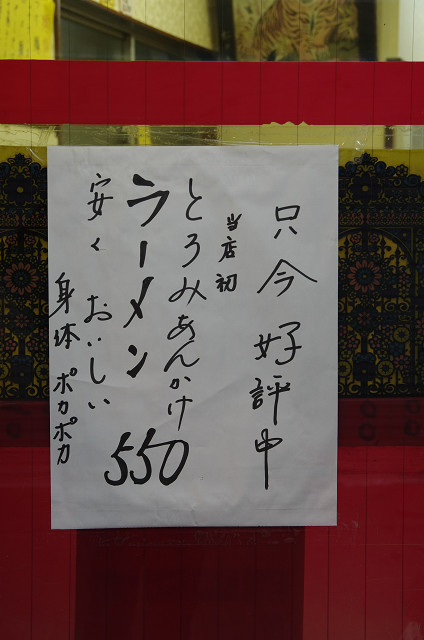 只今好評中
当店初
とろみあんかけ
ラーメン550
安くおいしい
身体ポカポカ